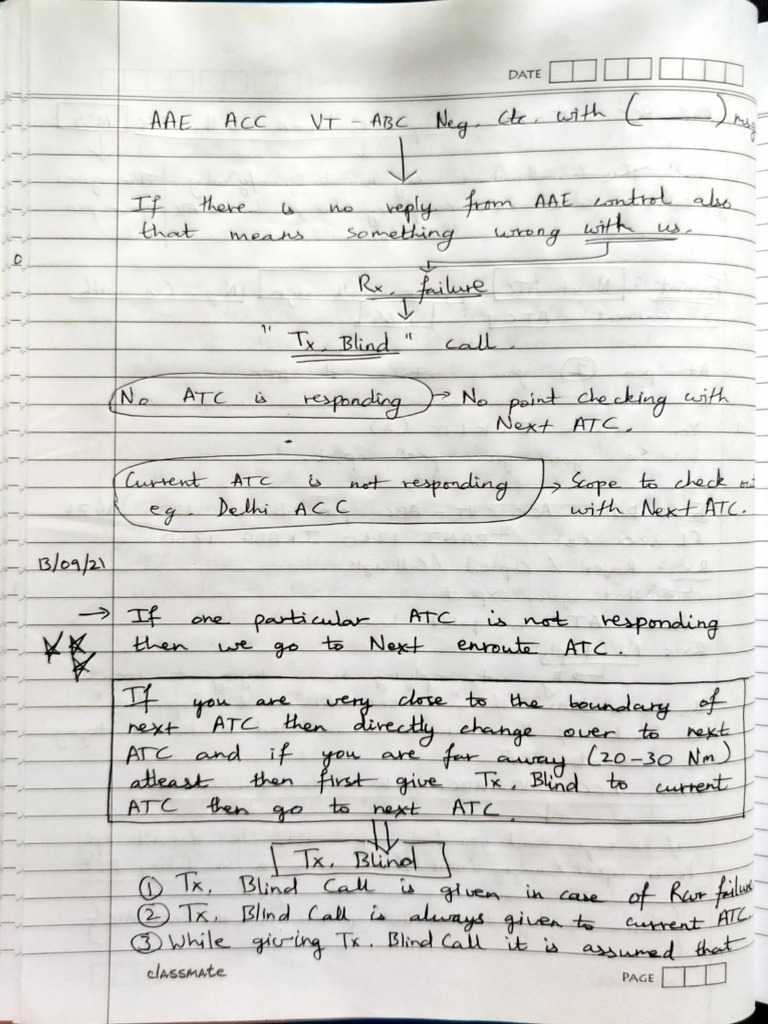 DATE
AAE ACC VT-ABC Neg. Ctc. with (______) msg
If there is no reply from AAE control also
that means something wrong with us.
Rx. failure
"Tx. Blind" call.
No ATC is responding → No point checking with
Next ATC.
Current ATC is not responding → Scope to check
eg. Delhi ACC with Next ATC.
13/09/21
→ If one particular ATC is not responding
then we go to Next enroute ATC.
If you are very close to the boundary of
next ATC then directly change over to next
ATC and if you are far away (20-30 Nm)
atleast then first give Tx. Blind to current
ATC then go to next ATC.
Tx. Blind
① Tx. Blind Call is given in case of Rcvr failure
② Tx. Blind Call is always given to current ATC.
③ While giving Tx. Blind Call it is assumed that
classmate
PAGE